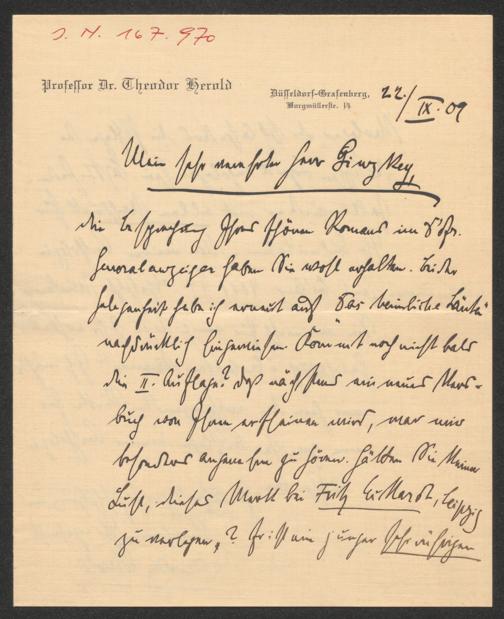 J. N. 167.970
Professor Dr. Theodor Herold
Düsseldorf-Grafenberg,
Burgmüllerstr. 14
22./IX. 09
Mein sehr verehrter Herr Ginzkey,
die Besprechung Ihres schönen Romans im
Generalanzeiger haben Sie wohl erhalten. Bei der
Gelegenheit habe ich erneut auf "Das heimliche Läuten"
nachdrücklich hingewiesen. Kommt noch nicht bald
die II. Auflage? Daß nächstens ein neues Vers-
buch von Ihnen erscheinen wird, war mir
besonders angenehm zu hören. Hätten Sie keine
Lust, dieses Werk bei Fritz Eckardt, Leipzig
zu verlegen? Er ist ein junger sehr rühriger